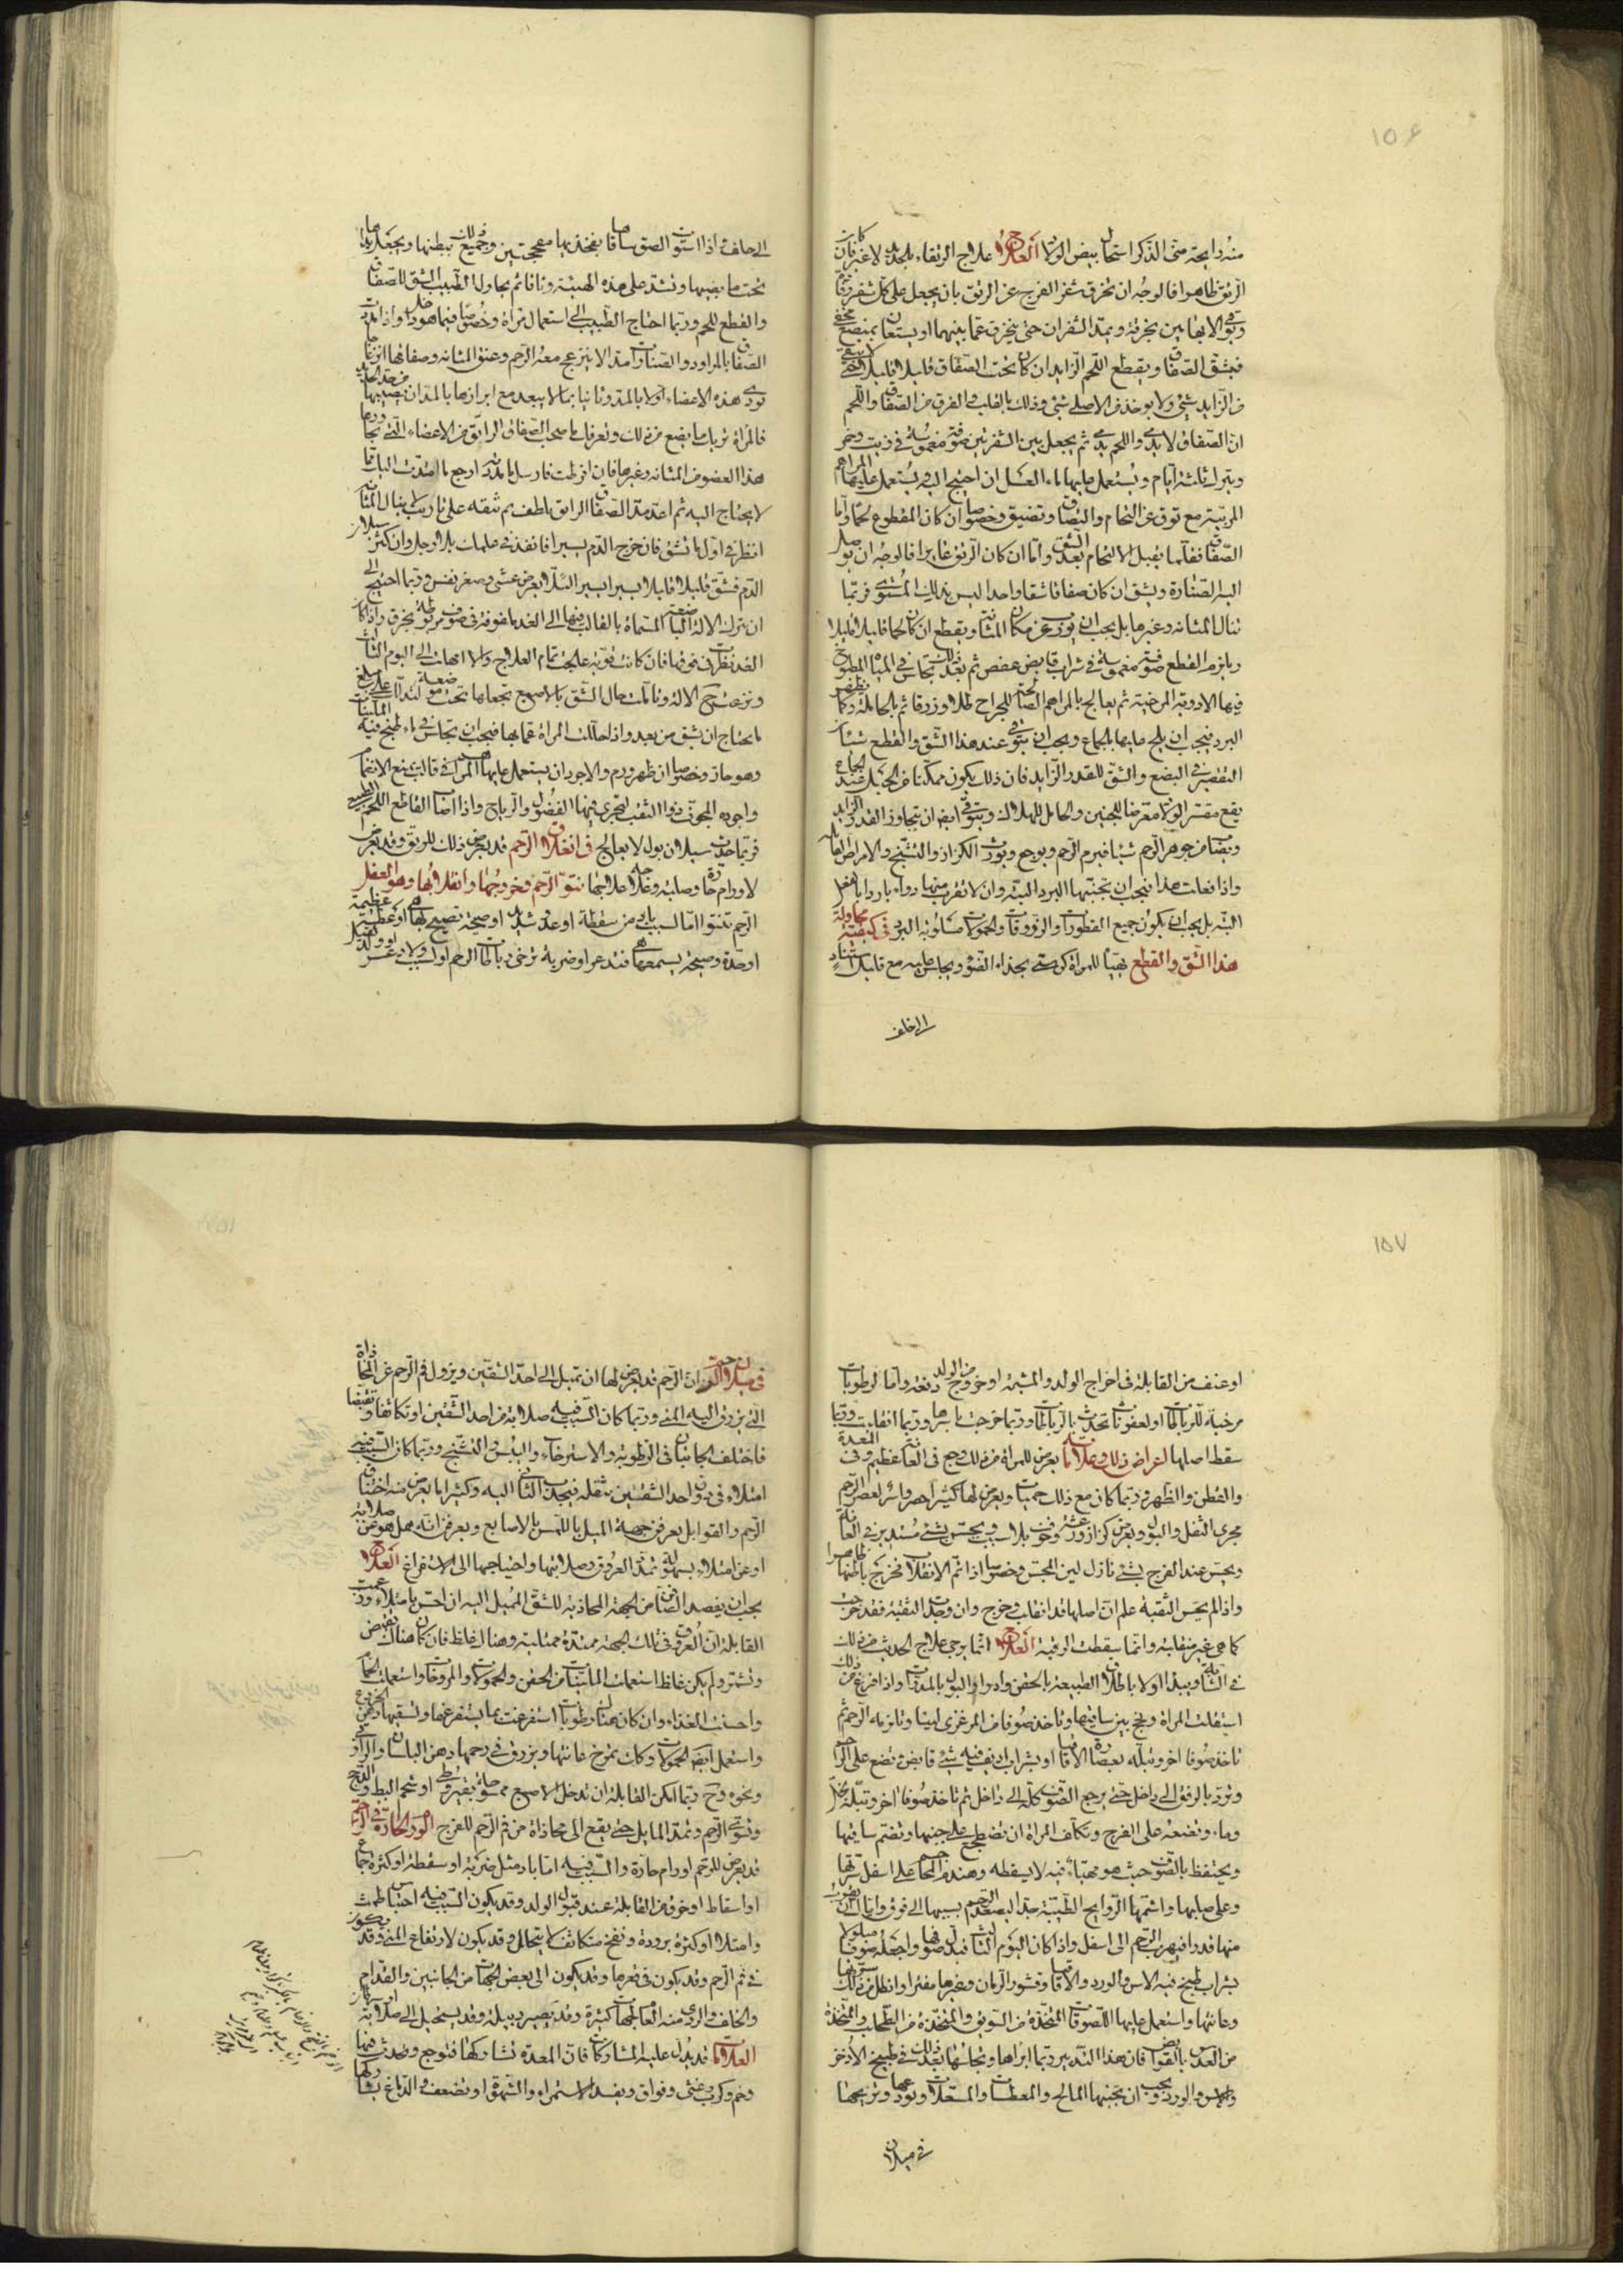 ١٥٦
منه رايحة منى الذكر استحال بيض الولاد العلاج علاج الرتقاء بالحديد لا غير فان كان
الرتق ظاهرا فالوجه ان يخرق شفر الفرج عن الرتق بان يجعل على كل شفر رفادة
ويوقى الابهامين بخرقة ويمد الشفران حتى ينخرق عما بينهما او يستعان بمبضع مخفى
فيشق الصفاق ويقطع اللحم الزايد ان كان تحت الصفاق قليلا قليلا حتى لا يبقى
من الزايد شئ ولا يوخذ من الاصلى شئ وذلك بالقلب والفرق من الصفاق واللحم
ان الصفاق لا يدمى واللحم يدمى ثم يجعل بين الشفرين صوفة مغموسة فى زيت وخمر
ويترك ثلثة ايام ويستعمل عليها ماء العسل ان احتيج اليه ويستعمل عليها المراهم
المربية مع توق عن التحام والتصاق وتضيق وخصوصا ان كان المقطوع لحما واما
الصفاق فقلما يقبل الالتحام بعد الشق واما ان كان الرتق غايرا فالوجه ان يوصل
اليه الصنارة ويشق ان كان صفاقا شقا واحدا ليس بذلك المستوى فربما
تنال المثانه وغيرها بل يجب ان يورب عن مكان المثانة ويقطع ان كان لحما قليلا قليلا
ويلزم القطع صوفة مغموسة فى شراب قابض عفص ثم بعد ذلك تجلس فى المياه المطبوخ
فيها الادوية المرخية ثم يعالج بالمراهم الصالحة للجراح طلاء وزرقا ثم بالحاملة وكما يظهر
البرء فيجب ان يلح عليها بالجماع ويجب ان يتوقى عند هذا الشق والقطع شيئان
التقصير فى البضع والشق للقدر الزايد فان ذلك يكون ممكنا من الحبل عند الجماع
يقع متعسر الولاد معرضا للجنين والحامل للهلاك ويتوقى ايضا ان يتجاوز القدر الزايد
ويصاب من جوهر الرحم شيئا فيرم الرحم ويوجع ويورث الكزاز والتشنج والامراض القاتلة
واذا فعلت هذا فيجب ان تجنبها البرد البتة وان لا تقرب منها دواء باردا بالفعل
البتة بل يجب ان يكون جميع القطورات والزروقات والحمولات مسلوبة البرد فى كيفية محاولة
هذا الشق والقطع يهيا للمراة كرسى بحذاء الضوء ويجلس عليه مع قليل استناد
الى خلف
الى خلف فاذا استوت الصق ساقاها بفخذيها مفحجتين وجميع ذلك ببطنها ويجعل يداها
تحت مابضيها وتشد على هذه الهيئة وثاقا ثم يحاول الطبيب الشق للصفاق
والقطع للحم وربما احتاج الطبيب الى استعمال مراة وخصوصا فيما هو داخل واذا مددت
الصفاق بالمراود والصنارات مدا لا ينزعج معه الرحم وعنق المثانه وصفاقها انزعاجا
توذى هذه الاعضاء اولا بالمد وثانيا بما لا يبعد مع ابرازها بالمد ان يصيبها من حد الحديد
فالمراة تريك ما يضع من ذلك وتعرفك ما صحب الصفاق الراتق من الاعضاء التى تجاورها
هذا العضو من المثانه وغيرها فان افرطت فارسل ما مددته ارجع ما امتدت اليك مما
لا يحتاج اليه ثم اعد مد الصفاق الراتق بلطف ثم شقه على تاريب لا ينال المثانة
انظر فى اول ما تشق فان خرج الدم يسيرا فانفذ فى علمك بلا وجل وان كثر سيلان
الدم فشق قليلا قليلا يسيرا يسيرا لئلا يعرض غشى وصغر نفس وربما احتيج الى
ان يترك الالة الباضعة المسماة بالقالب فيها الى الغد ملفوفة فى صوف مربوطة بخرق واذا كان
الغد نظرت فى قوتها فان كانت قوية عالجت تمام العلاج والا امهلت الى اليوم الثالث
ونزعت ح الالة وتاملت حال الشق بالاصبع تجعلها تحت موضعه لتدلك على مبلغ
ما يحتاج ان يشق من بعد واذا حللت المراة عما بها فيجب ان تجلس فى ماء طبخ فيه الملينات
وهو حار وخصوصا ان ظهر ورم والاجود ان يستعمل عليها المراهم فى قالب يمنع الانضمام
واجوده المجوف ذو الثقب ليجرى فيها الفضول والرياح واذا اصاب القاطع اللحم الطبيعى
فربما حدث سيلان بول لا يعالج فى انغلاق الرحم قد يعرض ذلك للرتق وقد يعرض
لاورام حارة وصلبة وعلاجه علاجها نتو الرحم وخروجها وانقلابها وهو العفل
الرحم تنتو اما لسبب باد من سقطة او عدو شديد او صيحة تصيح بها هى او عطسة عظيمة
او هدة وصيحة يسمعها هى فتذعر او ضربة ترخى رباطات الرحم او لسبب ولاد عسر او ولد ثقيل
١٥٧
او عنف من القابلة فى اخراج الولد والمشيمة او خروج من الولد دفعة واما لرطوبات
مرخية للرباطات او لعفونات تحدث بالرباطات وربما خرجت باسرها وربما انقلبت وربما
سقط اصلها اعراض ذلك وعلاماته يعرض للمراة من ذلك وجع فى العانة عظيم وفى المعدة
والقطن والظهر وربما كان مع ذلك حميات ويعرض لها كثيرا حصر واسر لعصر الرحم
مجرى الثفل والبول ويعرض كزاز ورعشة وخوف بلا سبب ويحس بشئ مستدير فى العانة
ويحس عند الفرج بشئ نازل لين المجس وخصوصا اذا تم الانقلاب فخرج باطنها ظاهرا
واذا لم يحس الثقبة علم ان اصلها قد انقلب وخرج وان وجدت الثقبة فقد خرجت
كما هى غير منقلبة وانما سقطت الرقبة العلاج انما يرجى علاج الحديث من ذلك
فى الشابة ويبدا اولا باطلاق الطبيعة بالحقن وادرار البول بالمدرات واذا فرغ من ذلك
استلقت المراة ويفج بين ساقيها وتاخذ صوفا من المرعزى لينا وتلزمه الرحم ثم
تاخذ صوفا اخر وتبله بعصارة الاقاقيا او بشراب اديف فيه شئ قابض وتضع على الرحم
وترد بالرفق الى داخل حتى يرجع الصوف كله الى داخل ثم تاخذ صوفا اخر وتبله بخل
وماء وتضعه على الفرج وتكلف المراة ان تضطجع على جنبها وتضم ساقيها
ويحتفظ بالصوف حيث هو مهيا فيه لا يسقطه وهند المحاجم على اسفل سرتها
وعلى صلبها واشتمها الروايح الطيبة جدا ليصعد الرحم بسببها الى فوق واياك ان يقرب
منها قذرا فيهرب الرحم الى اسفل واذا كان اليوم الثالث فبدل صوفها واجعله صوفا مبلولا
بشراب طبخ فيه الاس والورد والاقاقيا وقشور الرمان وغيرها مفترا وانطل من ذلك سرتها
وعانتها واستعمل عليها اللصوقات المتخذة من السويق والمتخذة من الطحلب والمتخذة
من العدس بالقوابض فان هذا التدبير ربما ابراها وتجلسها بعد ذلك فى طبيخ الاذخر
والاس والورد ويجب ان يجنبها المالح والمعطسات والمسعلات وتودعها وتريحها
فى ميلان
فى ميلان الرحم ان الرحم قد يعرض لها ان تميل الى احد الشقين ويزول فم الرحم عن المحاذاة
التى يزرق اليه المنى وربما كان السبب فيه صلابة من احد الشقين او تكاثفا وتقبضا
فاختلف الجانبان فى الرطوبة والاسترخاء واليبس والتشنج وربما كان السبب فيه
امتلاء فى عروق احد الشقين بثقله فيجذب الثانى اليه وكثيرا ما يعرض منه اختناق
الرحم والقوابل يعرفن جهة الميل باللمس بالاصابع ويعرفن انه هل هو عن صلابة
او عن امتلاء بسهولة تمدد العروق وصلابتها واحتياجها الى الاستفراغ العلاج
يجب ان يفصد الصافن من الجهة المحاذية للشق المميل اليه ان احس بامتلاء وزعمت
القابلة ان العروق فى تلك الجهة ممتدة ممتلية وهناك غلظ فان كان هناك تقبض
وتشنج ولم يكن غلظ استعملت الملينات من الحقن والحمولات والمروخات واستعملت الحمام
واحسنت الغذاء وان كان هناك رطوبات استفرغت بما يستفرغها ولسقيها دهن الخروع
واستعمل ايضا الحمولات وكان يمرخ عانتها ويزرق فى رحمها دهن البلسان والرازقى
ونحوه وح ربما امكن القابلة ان تدخل الاصبع ممسوحا بقيروطى او شحم البط والدجاج
وتسوى الرحم وتمد المايل حتى يقع الى محاذاة من فم الرحم للفرج الورم الحادة فى الرحم
قد يعرض للرحم اورام حارة والسبب فيه اما باد مثل ضربة او سقطة او كثرة جماع
او اسقاط او خرق من القابلة عند قبول الولد وقد يكون السبب فيه احتباس طمث
وامتلاء او كثرة برودة ونفخ متكاثف لا يتحلل وقد يكون لارتفاع المنى وقد يكون
فى فم الرحم وقد يكون فى قعرها وقد يكون الى بعض الجهات من الجانبين والقدام
والخلف والردى منه العام للجهات كثيرة وقد يصير دبيلة وقد يستحيل الى صلابة او سرطان
العلامات قد يدل عليه المشاركات فان المعدة تشاركها فتوجع ويحدث فيها
وغم وكرب وغثى وفواق ويفسد الاستمراء والشهوة او تضعف والدماغ يشاركها